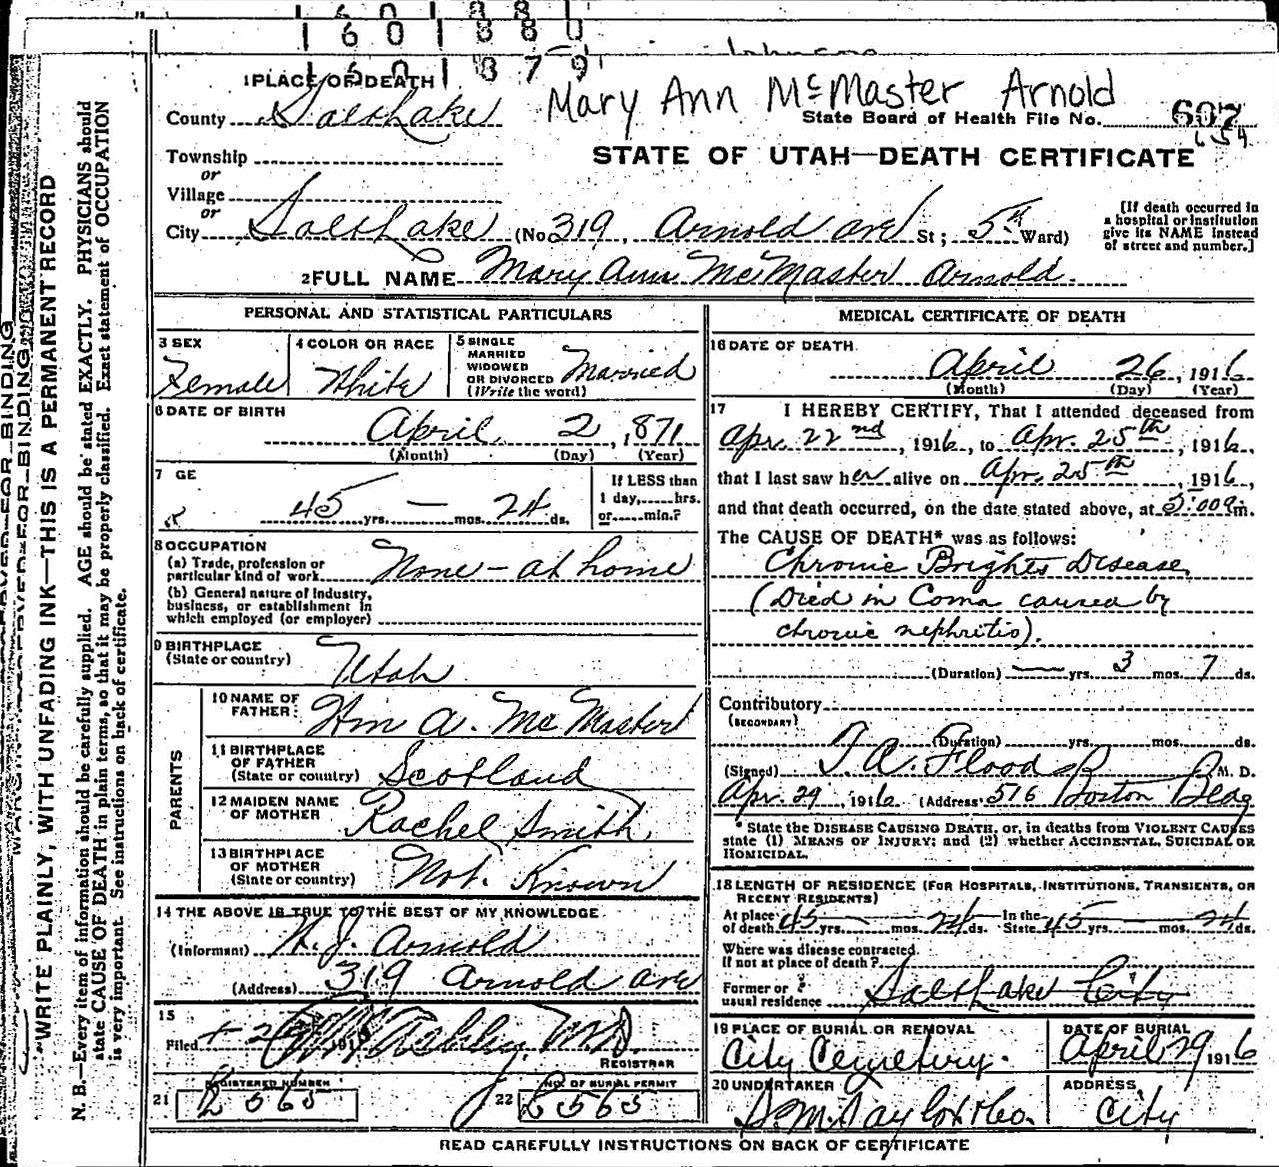 1 6 0 1 8 8 0
1 6 0 1 8 7 9
1 PLACE OF DEATH
Mary Ann McMaster Arnold
County Salt Lake
State Board of Health File No. 607
654
Township
or
STATE OF UTAH—DEATH CERTIFICATE
Village
or
City Salt Lake (No 319, Arnold ave St; 5th Ward)
[If death occurred in
a hospital or institution
give its NAME instead
of street and number.]
2 FULL NAME Mary Ann McMaster Arnold.
PERSONAL AND STATISTICAL PARTICULARS
3 SEX
Female
4 COLOR OR RACE
White
5 SINGLE
MARRIED
WIDOWED
OR DIVORCED
(Write the word)
Married
6 DATE OF BIRTH
April 2, 1871
(Month) (Day) (Year)
7 GE
45 yrs. — mos. 24 ds.
If LESS than
1 day,......hrs.
or......min.?
8 OCCUPATION
(a) Trade, profession or
particular kind of work
None - at home
(b) General nature of Industry,
business, or establishment in
which employed (or employer)
9 BIRTHPLACE
(State or country)
Utah
PARENTS
10 NAME OF
FATHER
Wm A. McMaster
11 BIRTHPLACE
OF FATHER
(State or country)
Scotland
12 MAIDEN NAME
OF MOTHER
Rachel Smith
13 BIRTHPLACE
OF MOTHER
(State or country)
Not Known
14 THE ABOVE IS TRUE TO THE BEST OF MY KNOWLEDGE
(Informant) H. J. Arnold
(Address) 319 Arnold ave
15
Filed 191 M.D.
REGISTRAR
REGISTERED NUMBER
21
NO. OF BURIAL PERMIT
22 6565
MEDICAL CERTIFICATE OF DEATH
16 DATE OF DEATH
April 26, 1916
(Month) (Day) (Year)
17 I HEREBY CERTIFY, That I attended deceased from
Apr. 22nd, 1916, to Apr. 25th, 1916,
that I last saw her alive on Apr. 25th, 1916,
and that death occurred, on the date stated above, at 5:00 a m.
The CAUSE OF DEATH* was as follows:
Chronic Brights Disease
(Died in Coma caused by
chronic nephritis).
(Duration) — yrs. 3 mos. 7 ds.
Contributory
(SECONDARY)
(Duration) yrs. mos. ds.
(Signed) T. A. Flood M. D.
Apr. 29 1916 (Address) 516 Boston Bldg
* State the DISEASE CAUSING DEATH, or, in deaths from VIOLENT CAUSES
state (1) MEANS OF INJURY; and (2) whether ACCIDENTAL, SUICIDAL OR
HOMICIDAL.
18 LENGTH OF RESIDENCE (FOR HOSPITALS, INSTITUTIONS, TRANSIENTS, OR
RECENT RESIDENTS)
At place
of death 45 yrs. — mos. 24 ds. In the
State 45 yrs. — mos. 24 ds.
Where was disease contracted,
If not at place of death?
Former or
usual residence Salt Lake City
19 PLACE OF BURIAL OR REMOVAL
City Cemetery.
DATE OF BURIAL
April 29 1916
20 UNDERTAKER
S. M. Taylor & Co.
ADDRESS
City
READ CAREFULLY INSTRUCTIONS ON BACK OF CERTIFICATE
WRITE PLAINLY, WITH UNFADING INK—THIS IS A PERMANENT RECORD
N. B.—Every item of information should be carefully supplied. AGE should be stated EXACTLY. PHYSICIANS should
state CAUSE OF DEATH in plain terms, so that it may be properly classified. Exact statement of OCCUPATION
is very important. See instructions on back of certificate.